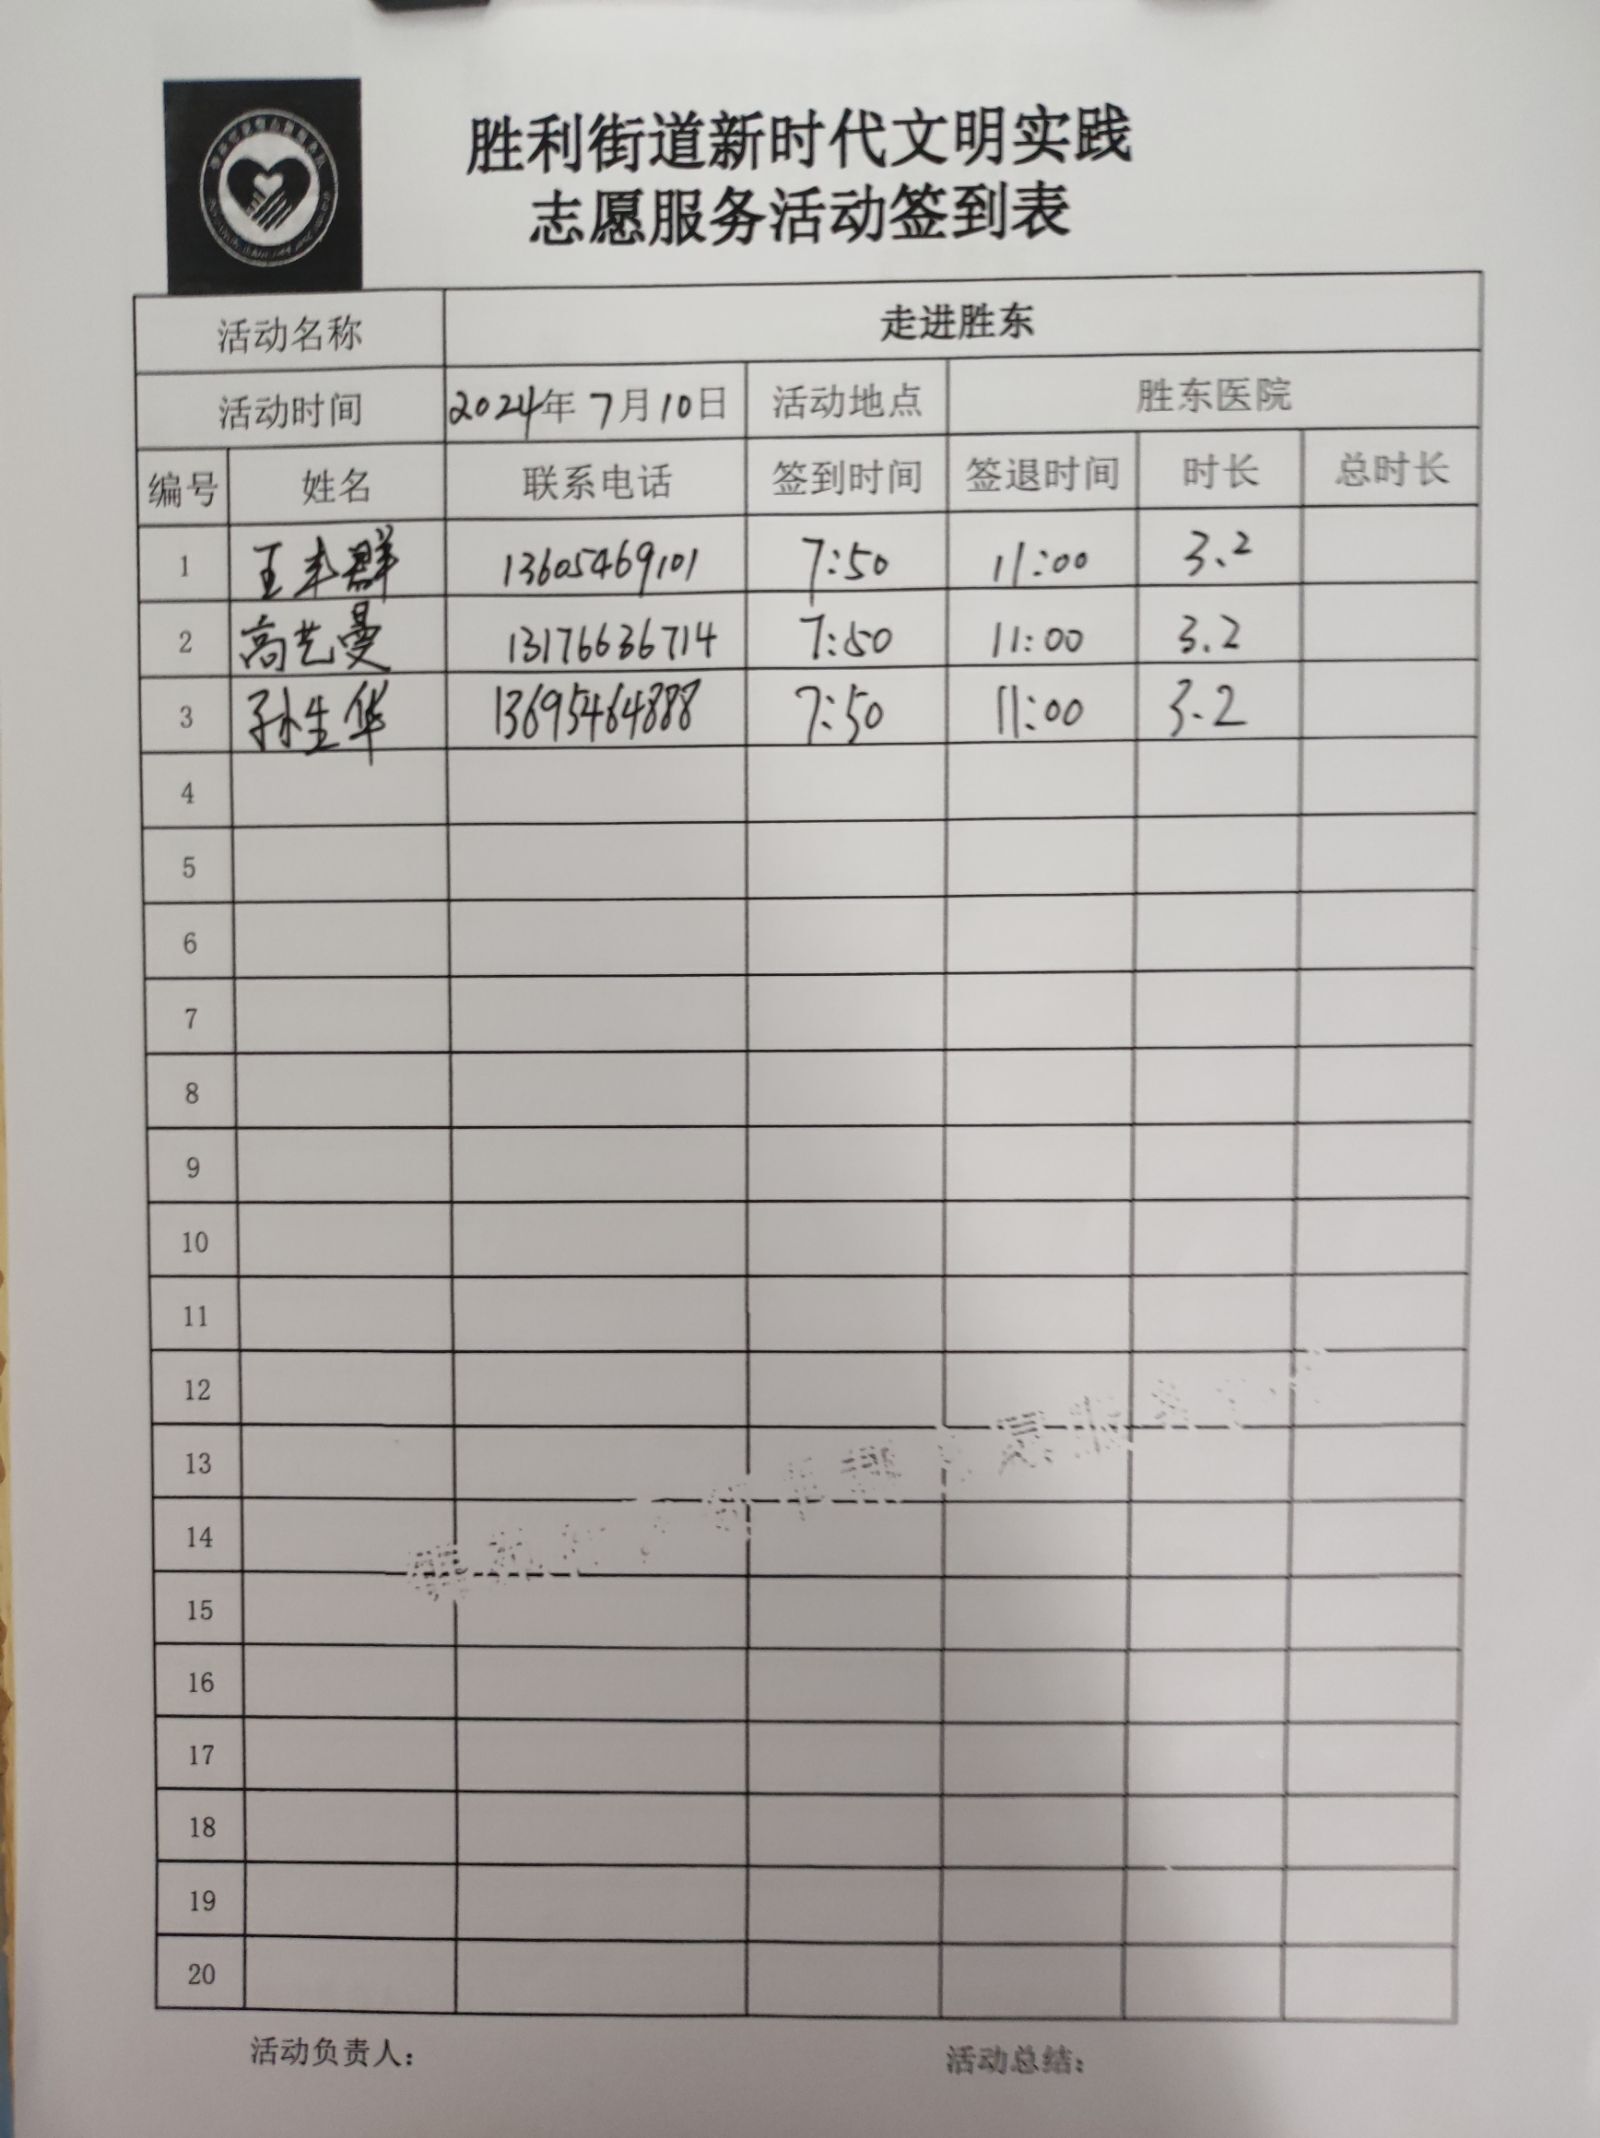 胜利街道新时代文明实践
志愿服务活动签到表
活动名称 走进胜东
活动时间 2024年 7月10日 活动地点 胜东医院
编号 姓名 联系电话 签到时间 签退时间 时长 总时长
1 王 群 13605469101 7:50 11:00 3.2
2 高艺曼 13176636714 7:50 11:00 3.2
3 孙生华 13695464888 7:50 11:00 3.2
4
5
6
7
8
9
10
11
12
13
14
15
16
17
18
19
20
活动负责人: 活动总结: